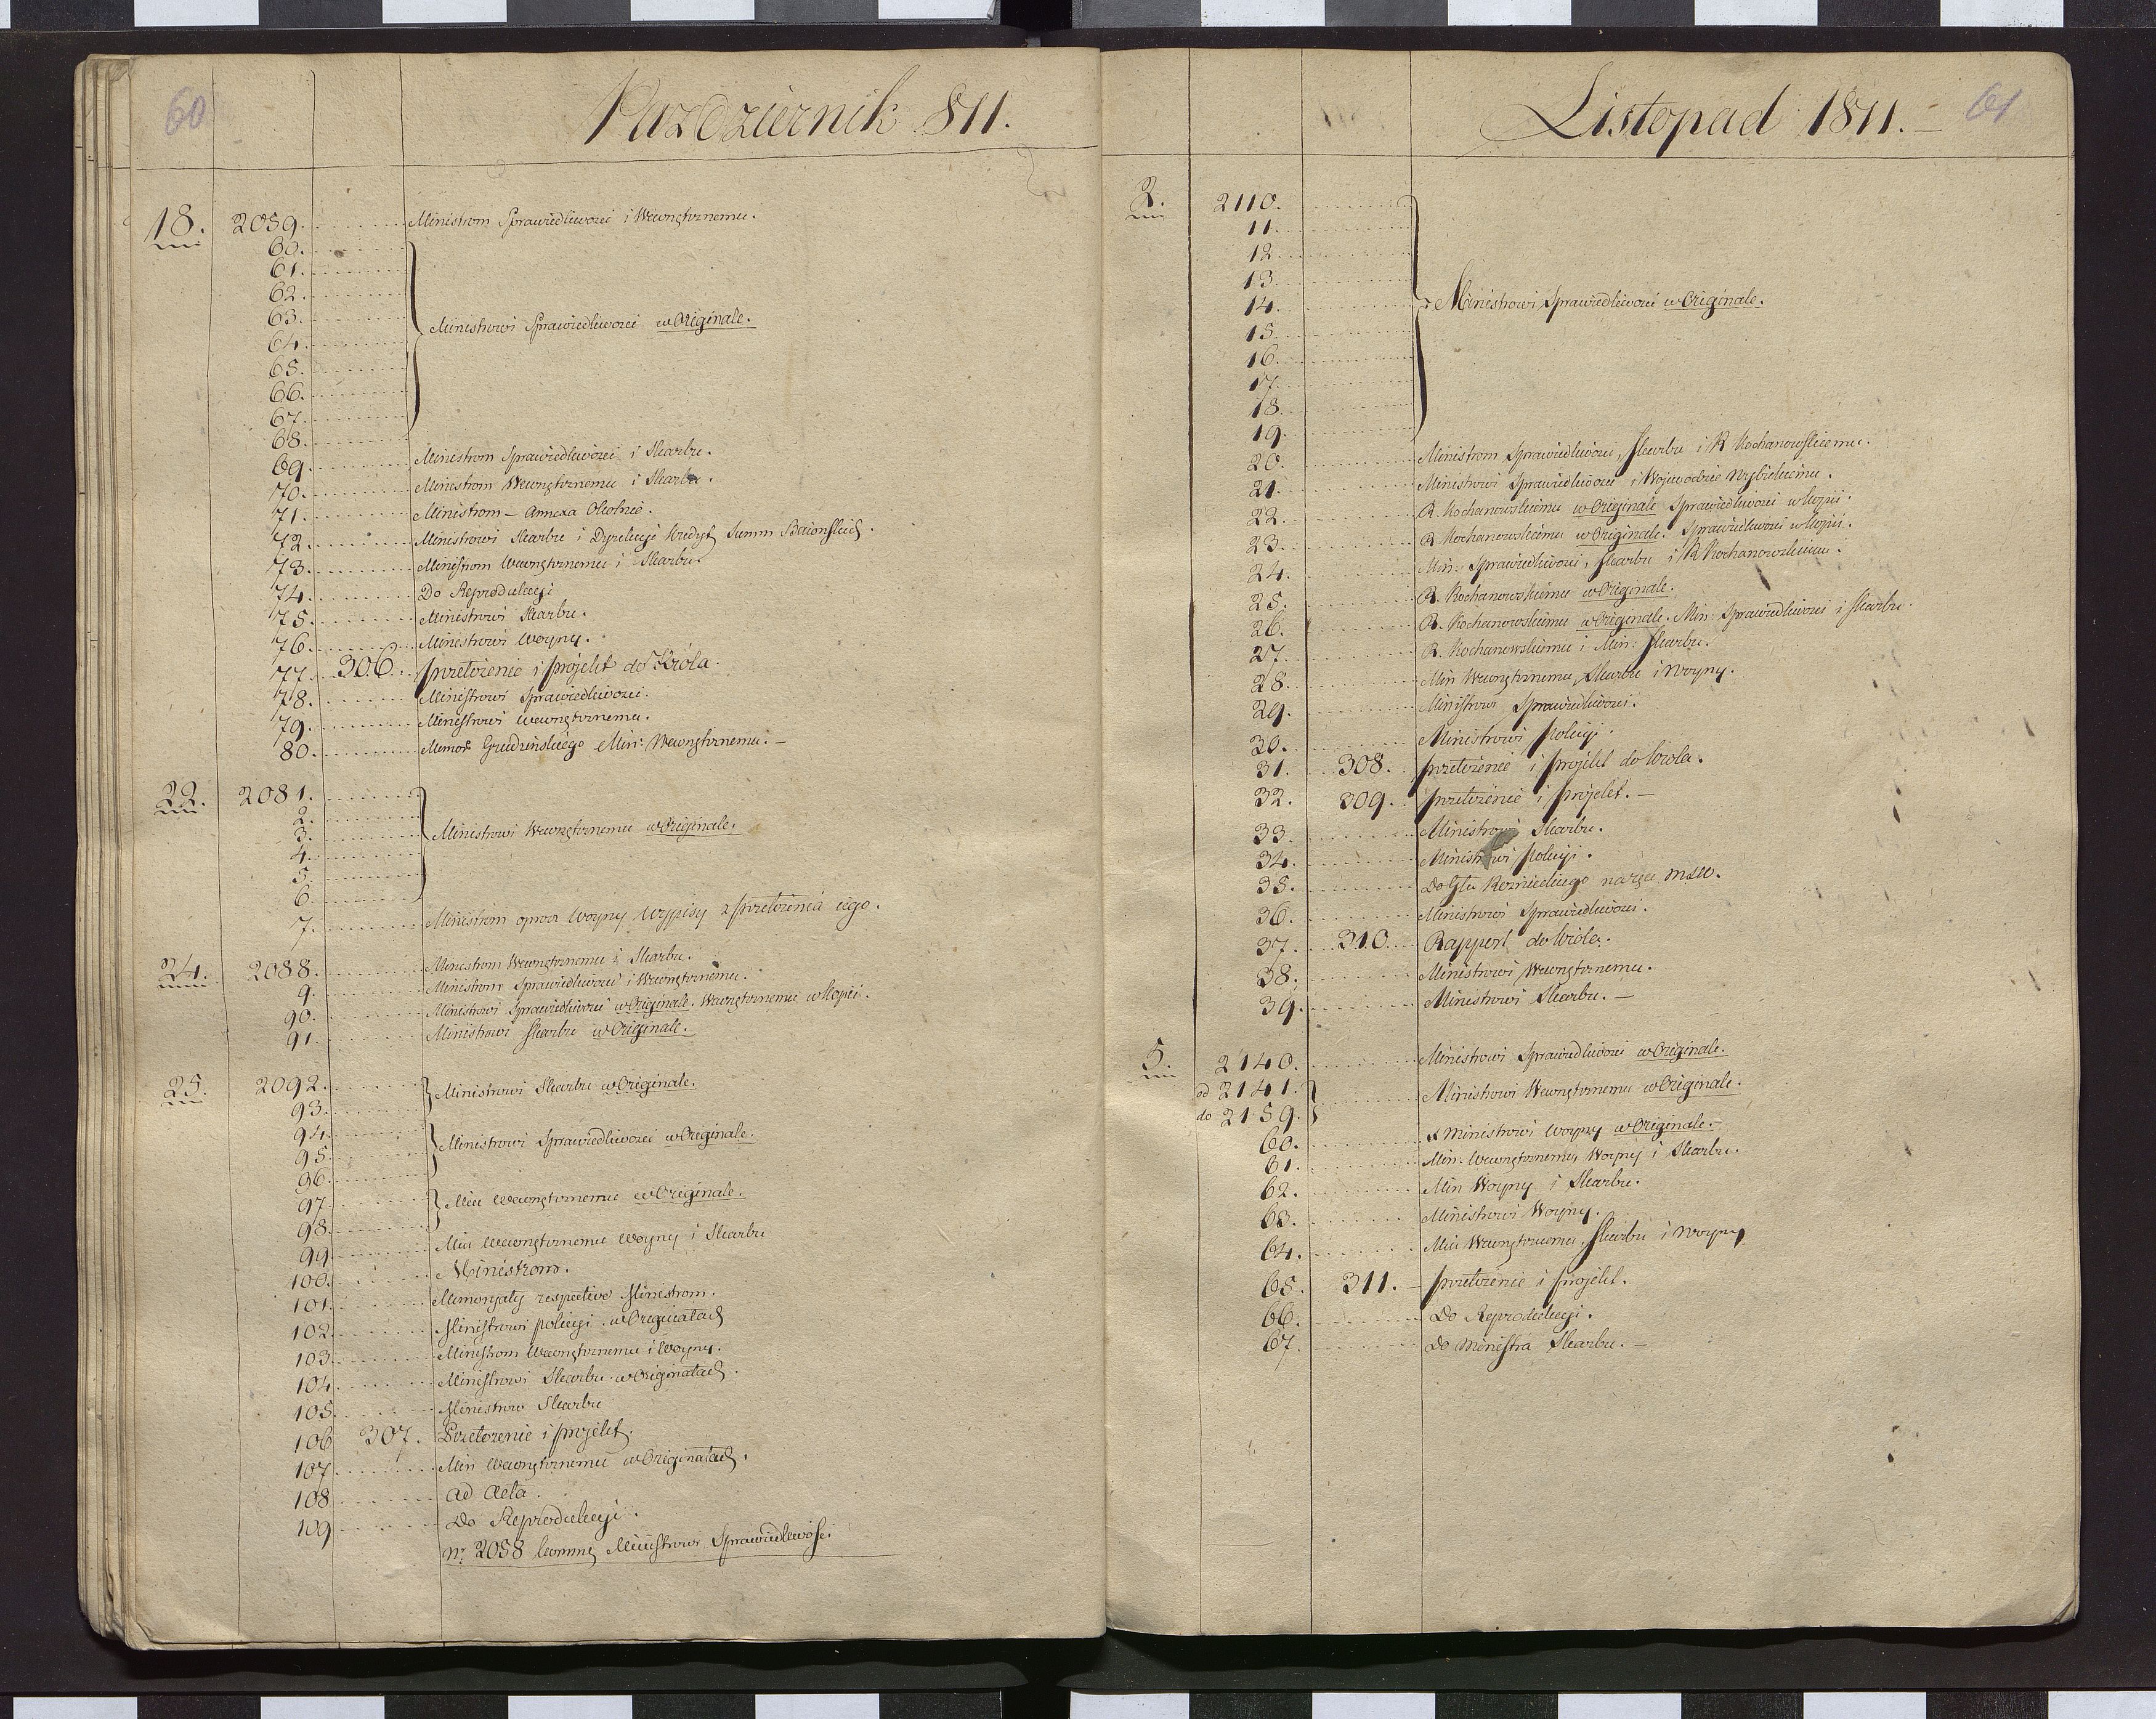 60
Pazdziernik 811.
18. 2059. Ministrom Sprawiedliwosci i Wewnętrznemu.
60.
61.
62.
63. Ministrowi Sprawiedliwosci w Originale.
64.
65.
66.
67.
68.
69. Ministrom Sprawiedliwosci i Skarbu.
70. Ministrom Wewnętrznemu i Skarbu.
71. Ministrom – Annexa Okolnie.
72. Ministrowi Skarbu i Dyrekcyi Kredyt Summ Baionskich.
73. Ministrom Wewnętrznemu i Skarbu.
74. Do Reprodukcyi
75. Ministrowi Skarbu.
76. Ministrowi Woyny.
77. 306. przełożenie i projekt do Króla.
78. Ministrowi Sprawiedliwosci.
79. Ministrowi Wewnętrznemu.
80. Memor Grudzinskiego Min: Wewnętrznemu. –
22. 2081.
2.
3. Ministrowi Wewnętrznemu w Originale.
4.
5.
6.
7. Ministrom oprocz Woyny Wypisy z przełożenia iego.
24. 2088. Ministrom Wewnętrznemu i Skarbu.
9. Ministrom Sprawiedliwosci i Wewnętrznemu.
90. Ministrowi Sprawiedliwosci w Originale. Wewnętrznemu w kopii.
91. Ministrowi Skarbu w Originale.
25. 2092. Ministrowi Skarbu w Originale.
93.
94. Ministrowi Sprawiedliwosci w Originale.
95.
96.
97. Min Wewnętrznemu w Originale.
98.
99. Min Wewnętrznemu Woyny i Skarbu
100. Ministrom.
101. Memoryały respective Ministrom.
102. Ministrowi policyi w Originałach
103. Ministrom Wewnętrznemu i Woyny.
104. Ministrowi Skarbu w Originałach.
105. Ministrow Skarbu
106 307. Przełożenie i projekt.
107 Min Wewnętrznemu w Originałach.
108 ad Acta.
109 Do Reprodukcyi.
Nr. 2058 Ministrowi Sprawiedliwosci
61
Listopad 1811. –
2. 2110.
11.
12
13.
14. Ministrowi Sprawiedliwosci w Originale.
15.
16.
17.
18.
19.
20. Ministrom Sprawiedliwosci, Skarbu i R Kochanowskiemu.
21. Ministrowi Sprawiedliwosci i Woiewodzie Wybickiemu.
22. R. Kochanowskiemu w Originale Sprawiedliwosci w kopii.
23. R Kochanowskiemu w Originale. Sprawiedliwosci w kopii.
24. Min: Sprawiedliwosci, Skarbu i R Kochanowskiemu.
25. R. Kochanowskiemu w Originale.
26. R. Kochanowskiemu w Originale. Min: Sprawiedliwosci i Skarbu.
27. R. Kochanowskiemu i Min: Skarbu.
28. Min Wewnętrznemu, Skarbu i Woyny.
29. Ministrowi Sprawiedliwosci.
30. Ministrowi policyi.
31. 308. przełożenie i projekt do Króla.
32. 309. przełożenie i projekt. –
33. Ministrowi Skarbu.
34. Ministrowi policyi.
35. Do Gła Roznieckiego na ręce MSW.
36. Ministrowi Sprawiedliwosci.
37. 310. Rapport do Króla.
38. Ministrowi Wewnętrznemu.
39. Ministrowi Skarbu. –
5. 2140. Ministrowi Sprawiedliwosci w Originale.
od 2141. Ministrowi Wewnętrznemu w Originale.
do 2159.
60. Ministrowi Woyny w Originale. –
61. Min: Wewnętrznemu, Woyny i Skarbu.
62. Min Woyny i Skarbu.
63. Ministrowi Woyny.
64. Min Wewnętrznemu, Skarbu i Woyny
65. 311. – przełożenie i projekt.
66. Do Reprodukcyi.
67. Do Ministra Skarbu. –